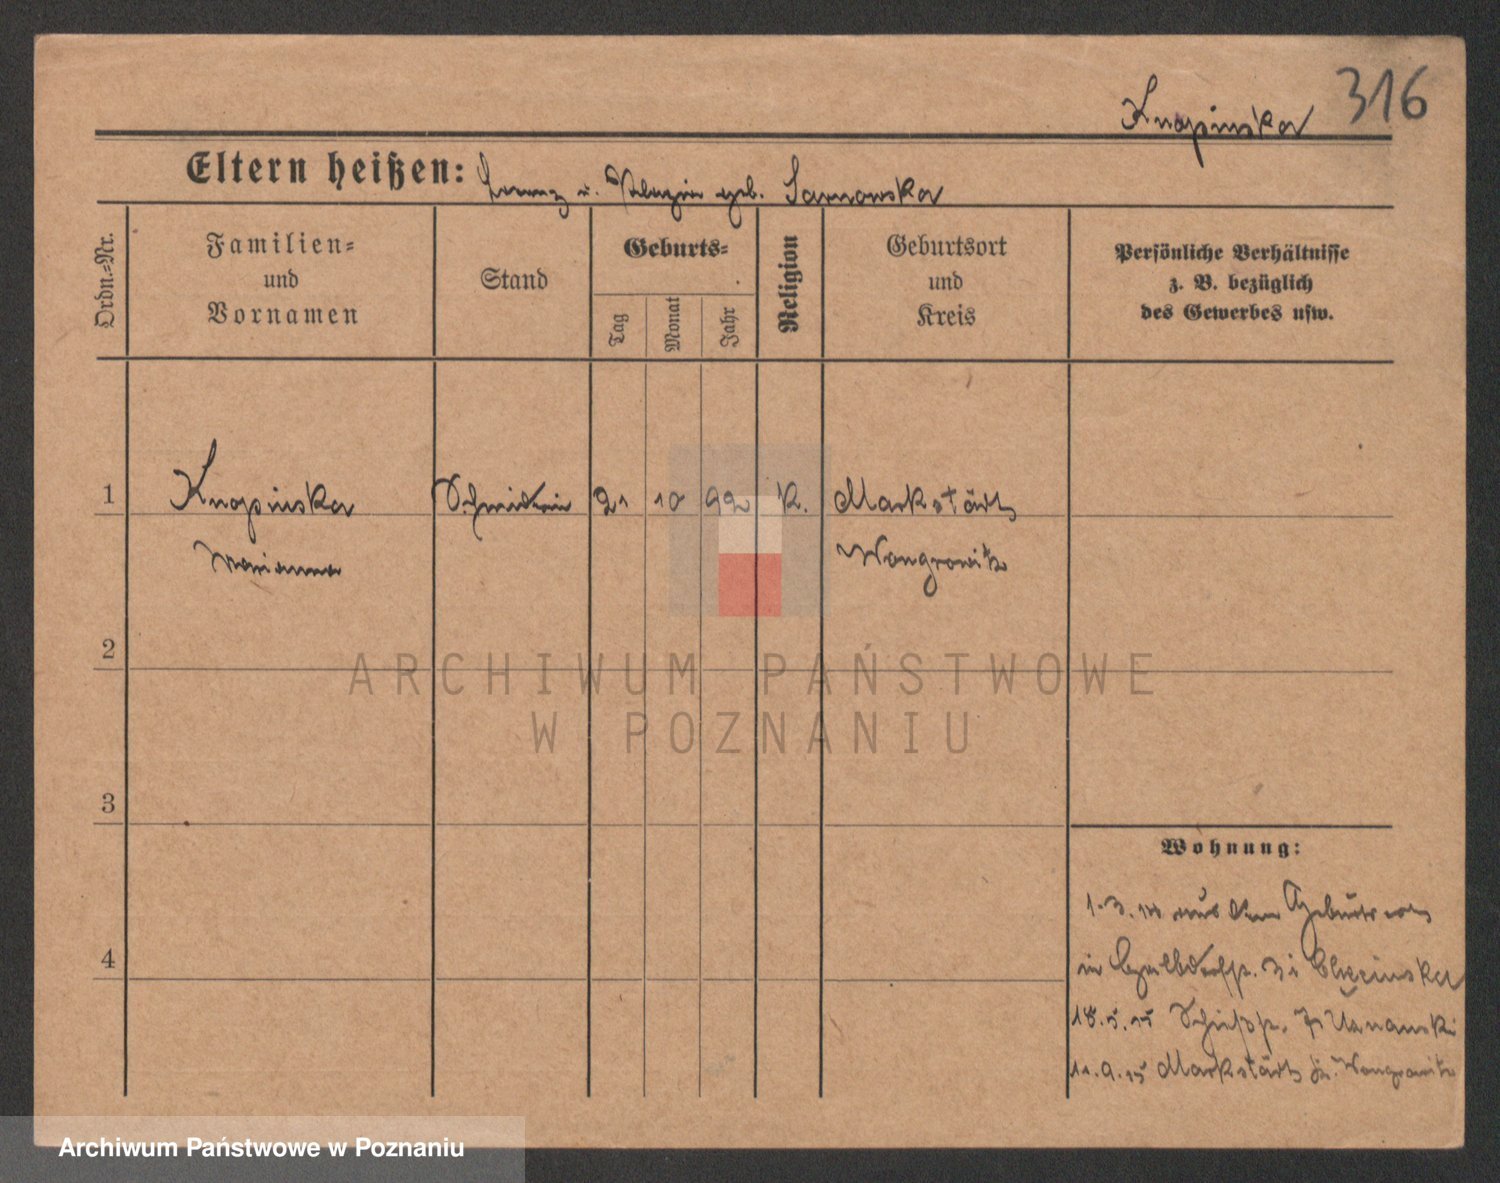 316
Knapinska
Eltern heißen: Franz u. Pelagia geb. Sarnowska
Ordn.=Nr.
Familien=
und
Vornamen
Stand
Geburts=
Tag
Monat
Jahr
Religion
Geburtsort
und
Kreis
Persönliche Verhältnisse
z. B. bezüglich
des Gewerbes usw.
1
Knapinska
Marianna
Schneiderin
21
10
92
k.
Markstädt
Wongrowitz
2
3
4
Wohnung:
aus dem Geburtsort
in
Markstädt Kr. Wongrowitz
ARCHIWUM PAŃSTWOWE
W POZNANIU
Archiwum Państwowe w Poznaniu